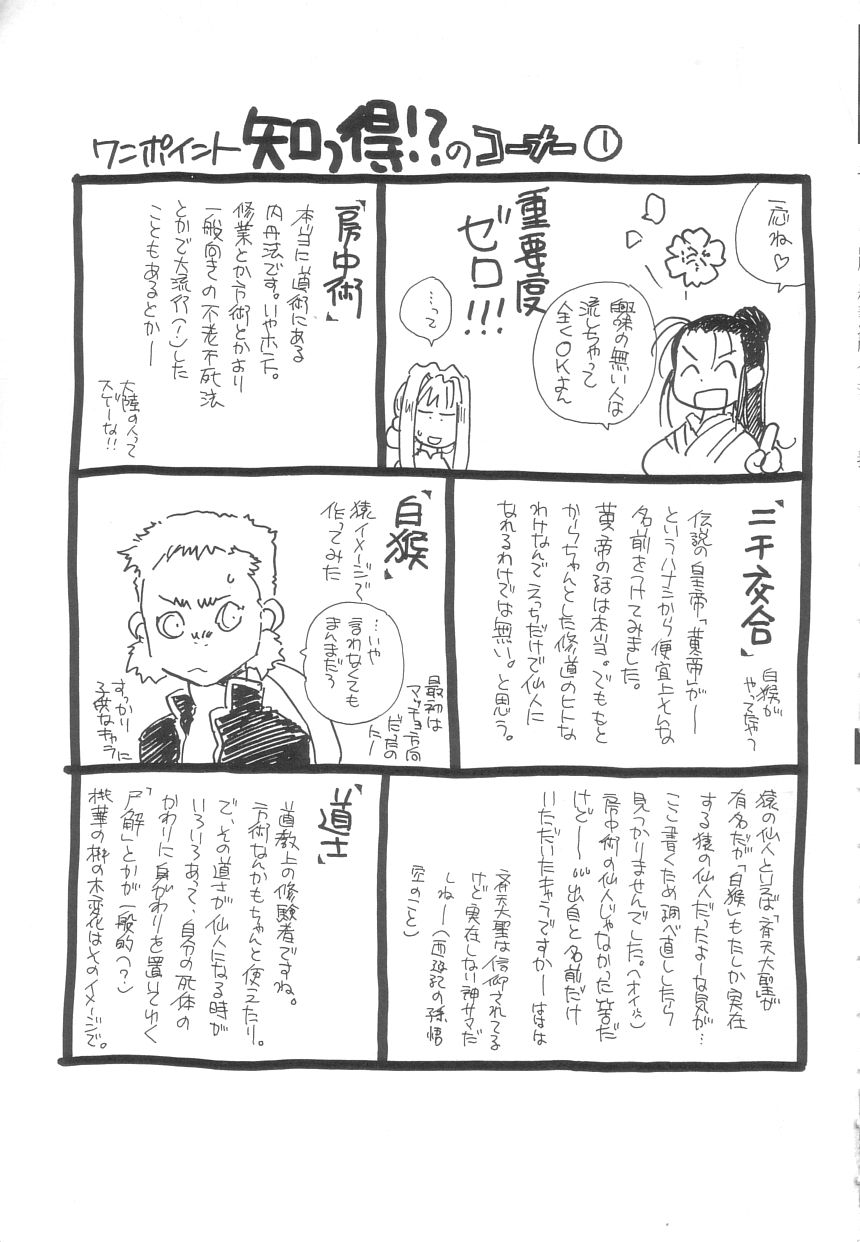 ワンポイント 知っ得!?のコーナー ①
一応ね♡
重要度
ゼロ!!!
興味の無い人は
流しちゃって
全くOKよん
…って
「房中術」
本当に道術にある
内丹法です。いやホント。
修業とか方術とかより
一般向きの不老不死法
とかで大流行(?)した
こともあるとかー
大陸の人って
スゲーな!!
「二千交合」
白猴が
やってたやつ
伝説の皇帝「黄帝」が―
というハナシから便宜上そんな
名前をつけてみました。
黄帝の話は本当。でももと
からちゃんとした修道のヒトな
わけなんでえっちだけで仙人に
なれるわけでは無い。と思う。
「白猴」
猿イメージで
作ってみた
…いや
言わなくても
まんまだろ
最初は
マッチョ方向
だったの
にー
すっかり
子供なキャラに
猿の仙人といえば「斉天大聖」が
有名だが「白猴」もたしか実在
する猿の仙人だったよーな気が…
ここ書くため調べ直ししたら
見っかりませんでした。(オイ)
房中術の仙人じゃなかった筈だ
けどー…出自と名前だけ
いただいたキャラですかーははは
斉天大聖は信仰されてる
けど実在しない神サマだ
しねー(西遊記の孫悟
空のこと)
「道士」
道教上の修験者ですね。
方術なんかもちゃんと使えたり。
で、その道さが仙人になる時が
いろいろあって、自分の死体の
かわりに身がわりを置いてゆく
「尸解」とかが一般的(?)
桃華の樹の木変化はそのイメージで。